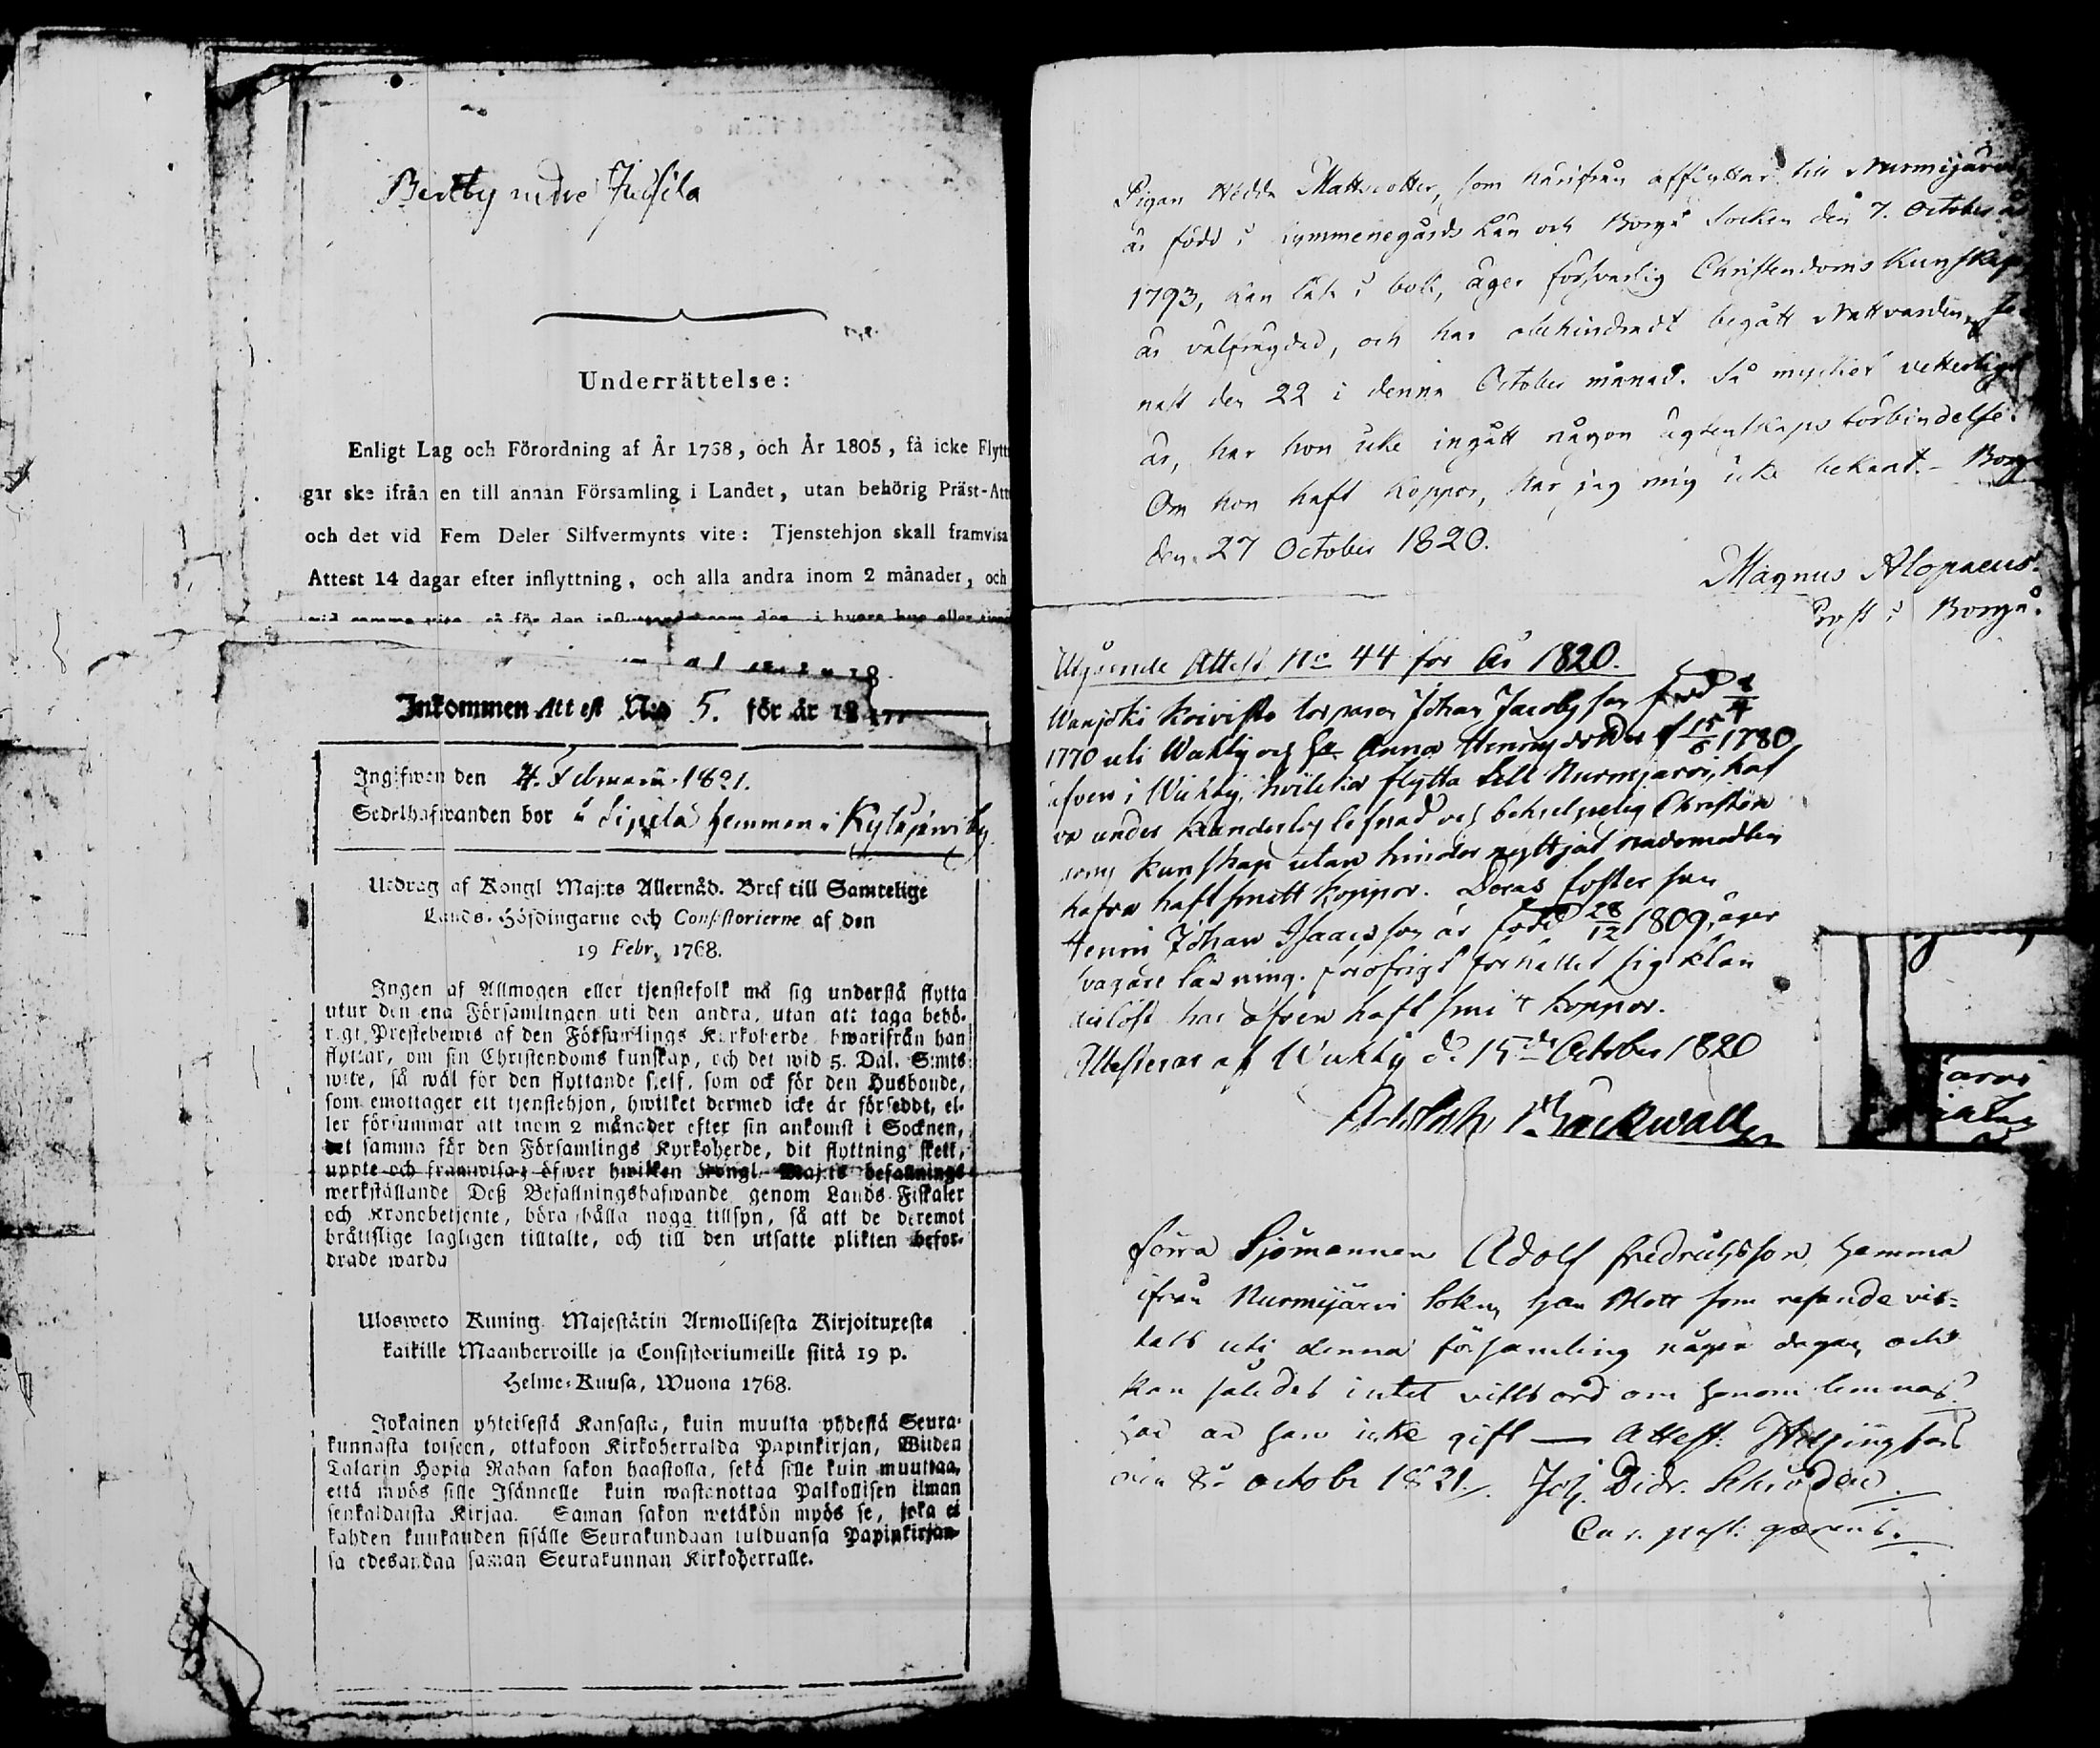 Underrättelse:
Enligt Lag och Förordning af År 1768, och År 1805, få icke Flytt
gar ske ifrån en till annan Församling i Landet, utan behörig Präst-Att
och det vid Fem Deler Silfvermynts vite: Tjenstehjon skall framvisa
Attest 14 dagar efter inflyttning, och alla andra inom 2 månader, och
Inkommen Attest N:o 5. för år 18
Ingifwen den 4. Februarii 1821.
Sedelhafwanden bor å Sipilä hemman i Kytäjärwi by
Utdrag af Kongl Maj:ts Allernåd. Bref till Samtelige
Lands-Höfdingarne och Consistorierne af den
19 Febr. 1768.
Ingen af Allmogen eller tjenstefolk må sig understå flytta
utur den ena Församlingen uti den andra, utan att taga behö-
rigt Prestebewis af den Församlings Kyrkoherde hwarifrån han
flyttar, om sin Christendoms kunskap, och det wid 5. Dal. S:mts
wite, så wäl för den flyttande sjelf, som ock för den Husbonde,
som emottager ett tjenstehjon, hwilket dermed icke är försedt, el-
ler försummar att inom 2 månader efter sin ankomst i Socknen,
det samma för den Församlings Kyrkoherde, dit flyttning skett,
uppte och framwisa; öfwer hwilken Kongl. Maj:ts befallnings
werkställande Deß Befallningshafwande genom Lands-Fiskaler
och Kronobetjente, böra hålla noga tillsyn, så att de deremot
bråttslige lagligen tilltalte, och till den utsatte plikten befor-
drade warda
Uloswero Kuning. Majestätin Armollisesta Kirjoituxesta
kaikille Maanherroille ja Consistoriumeille siitä 19 p.
Helme-Kuusa, Wuona 1768.
Jokainen yhteisestä Kansasta, kuin muutta yhdestä Seura-
kunnasta toiseen, ottakoon Kirkoherralda Papinkirjan, Wiiden
Talarin Hopia Rahan sakon haastolla, sekä sille kuin muuttaa,
että myös sille Isännelle kuin wastanottaa Palkollisen ilman
senkaldaista Kirjaa. Saman sakon wetäkön myös se, joka ei
kahden kuukauden sisälle Seurakundaan tulduansa Papinkirjan-
sa edesandaa saman Seurakunnan Kirkoherralle.
Pigan Hedda Mattsdotter, som härifrån afflyttar till Nurmijärvi
är född i Kymmenegårds Län och Borgå Socken den 7. October år
1793, kan läsa i bok, äger försvarlig Christendoms Kunskap
är välfrägdad, och har obehindradt begått Nattvarden se-
nast den 22 i denna October månad. Så mycket vetterligt
är, har hon icke ingått någon ägtenskaps förbindelse.
Om hon haft koppor, har jag mig icke bekant. - Borgå
den 27 October 1820.
Magnus Alopaeus.
Prost i Borgå.
Utgående Attest No 44 för År 1820.
Wanjoki Koivisto torparen Johan Jacobsson född
1770 uti Wichty och Anna Henricsdotter 1780
äfven i Wichty, hvilka flytta till Nurmijärvi, haf
va under klanderlig lefnad och behjelpelig Christen
doms kunskap utan hinder nyttjat nådemedlen
hafva haft smitt koppor. Deras foster son
Henric Johan Isaacsson är född 28/12 1809, äger
svagare läsning. föröfrigt förhållit sig klan
derlöst har äfven haft smitt koppor.
Attesteras af Wichty d. 15de October 1820
förra Sjömannen Adolf Fredrichsson, hemma
ifrån Nurmijärvi Sokn, har blott som resande vis-
tats uti denna församling några dagar, och
kan således intet vittsord om honom lemnas
här är han icke gift — Attest: Helsingfors
den 8. octobr 1821. Joh. Didr. Schroder.